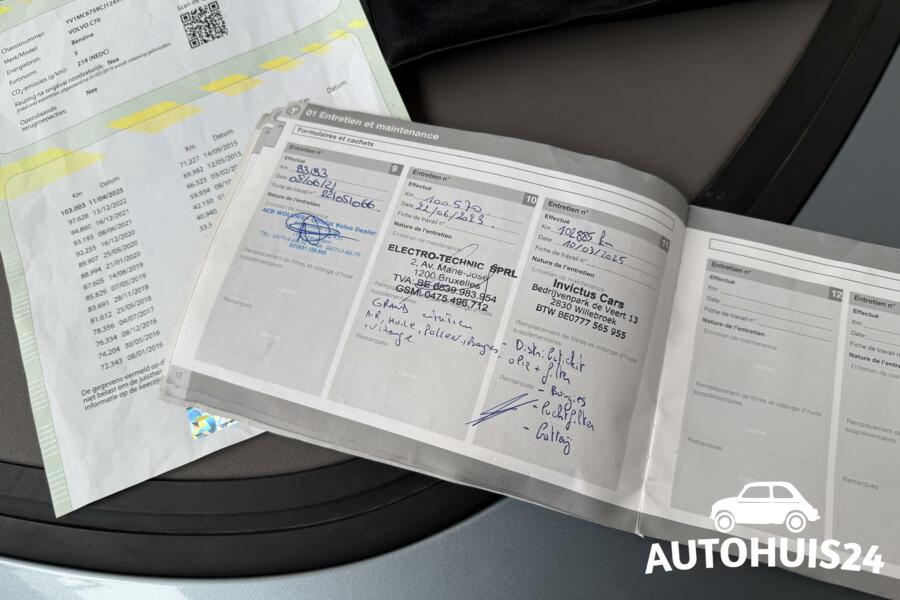 Scan de
Chassisnummer: YV1MC6759CJ124
Merk/Model: VOLVO C70
Energiebron: Benzine
Euronorm: 5
CO2-emissies (g/km): 219 (NEDC)
Keuring na ongeval noodzakelijk: Nee
Openstaande
terugroepacties: Nee
Km Datum
103.003 11/04/2025
97.628 13/12/2022
94.860 16/12/2021
93.193 08/06/2021
92.255 16/12/2020
89.907 25/05/2020
88.994 21/01/2020
87.605 14/08/2019
85.829 07/05/2019
83.691 28/11/2018
81.612 25/05/2018
78.556 04/07/2017
76.354 08/12/2016
74.204 30/05/2016
72.343 08/01/2016
Datum
71.227 14/09/2015
69.382 12/05/2015
66.323
59.934
42.150
40.940
Datum
De gegevens vermeld op d
niet belast om de juisthe
informatie op de keerzij
01 Entretien et maintenance
Formulaires et cachets
Entretien n° 9
Effectué
Km 93193
Date 08/06/21
Fiche de travail n°
Nature de l'entretien
Entretien de maintenance
ACB WOLUWE Official Volvo Dealer
Remplacement de filtres et vidange d'huile
supplémentaires
Cachet
Remarques
12
Entretien n° 10
Effectué
Km 100 570
Date 22/06/2023
Fiche de travail n°
Nature de l'entretien
Entretien de maintenance
ELECTRO-TECHNIC SPRL
2, Av. Marie-José
1200 Bruxelles
TVA: BE 0539.983.954
GSM: 0475.496.712
GRAND entretien
A.R, Huile, Pollen, Bougies,
vidange
Remarques
Cachet
Entretien n° 11
Effectué
Km 102885 km
Date 10/03/2025
Fiche de travail n°
Nature de l'entretien
Entretien de maintenance
Invictus Cars
Bedrijvenpark de Veert 13
2830 Willebroek
BTW BE0777 565 955
Remplacement de filtres et vidange d'huile
supplémentaires
- Distributiekit
Remarques
- Bougies
- Luchtfilter
Entretien n° 12
Effectué
Km
Date
Fiche de travail n°
Nature de l'entretien
Entretien de maintenance
Cachet
Remplacement de filtres et vidange d'huile
supplémentaires
Cachet
Remarques
Entretien n°
Effectué
Km
Date
Fiche de travail
Nature de l'entre
Entretien de main
Remplacement d
supplémentaires
Remarques
AUTOHUIS24